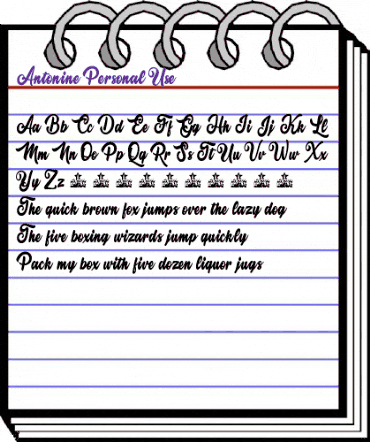 Antonine Personal Use
Aa Bb Cc Dd Ee Ff Gg Hh Ii Jj Kk Ll
Mm Nn Oo Pp Qq Rr Ss Tt Uu Vv Ww Xx
Yy Zz
The quick brown fox jumps over the lazy dog
The five boxing wizards jump quickly
Pack my box with five dozen liquor jugs